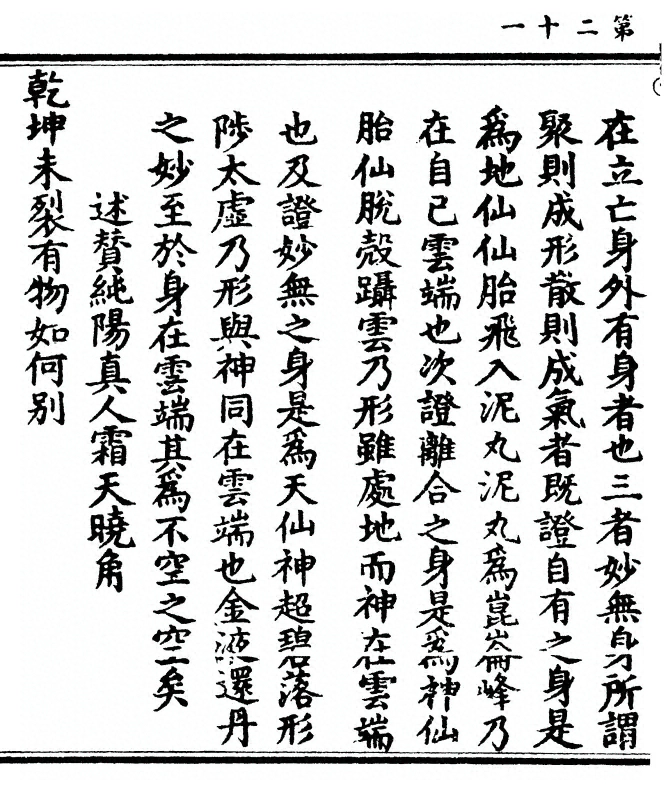 第二十一
在立亡身外有身者也三者妙無身所謂
聚則成形散則成氣者既證自有之身是
爲地仙仙胎飛入泥丸泥丸爲崑崙峰乃
在自己雲端也次證離合之身是爲神仙
胎仙脫殼躡雲乃形雖處地而神在雲端
也及證妙無之身是爲天仙神超碧落形
陟太虛乃形與神同在雲端也金液還丹
之妙至於身在雲端其爲不空之空矣
述贊純陽真人霜天曉角
乾坤未裂有物如何别